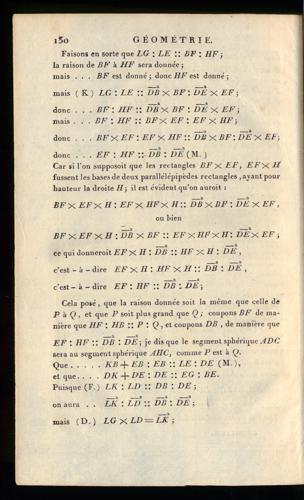 150 GÉOMÉTRIE.
Faisons en sorte que LG : LE :: BF : HF ;
la raison de BF à HF sera donnée ;
mais . . . BF est donné ; donc HF est donné ;
mais (K) LG : LE :: DB² × BF : DE² × EF ;
donc . . . BF : HF :: DB² × BF : DE² × EF ;
mais . . . BF : HF :: BF × EF : EF × HF ;
donc . . . BF × EF : EF × HF :: DB² × BF : DE² × EF ;
donc . . . EF : HF :: DB² : DE² (M.)
Car si l'on supposoit que les rectangles BF × EF, EF × H
fussent les bases de deux parallélépipèdes rectangles, ayant pour
hauteur la droite H ; il est évident qu'on auroit :
BF × EF × H : EF × HF × H :: DB² × BF : DE² × EF,
ou bien
BF × EF × H : DB² × BF :: EF × HF × H : DE² × EF ;
ce qui donneroit EF × H : DB² :: HF × H : DE²,
c'est-à-dire EF × H : HF × H :: DB² : DE²,
c'est-à-dire EF : HF :: DB² : DE² ;
Cela posé, que la raison donnée soit la même que celle de
P à Q, et que P soit plus grand que Q ; coupons BF de ma-
nière que HF : HB :: P : Q, et coupons DB, de manière que
EF : HF :: DB² : DE² ; je dis que le segment sphérique ADC
sera au segment sphérique AHC, comme P est à Q.
Que . . . . . KB + EB : EB :: LE : DE (M.),
et que . . . . DK + DE : DE :: EG : BE.
Puisque (F.) LK : LD :: DB : DE ;
on aura . . LK² : LD² :: DB² : DE² ;
mais (D.) LG × LD = LK² ;